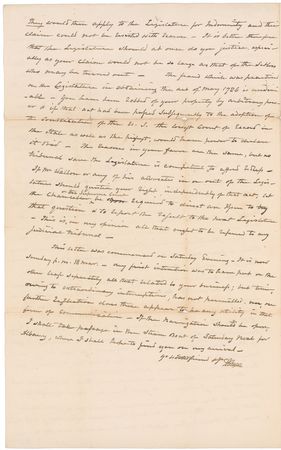 They would then apply to the Legislature for Indemnity and their
claim could not be treated with scorn — It is better therefore
that the Legislature should at once do you justice especi-
ally as your claim would not be as large as that of the Settlers
who may be turned out — the fraud which was practised
on the Legislature in obtaining the act of May 1786 is undeni-
able — You have been robbed of your property by arbitrary power
& if that act had been passed subsequently to the adoption of
the Constitution of the U. S. the lowest Court of Record in
the State as well as the highest, would have power to declare
it void — the reasons in your favour are the same, but no
tribunal save the Legislature is competent to afford relief —
If Mr or any of his advocates in or out of the Legis-
lature should question your right independently of that act, let
the Chancellor or the supreme Court be required to direct an Issue to try
that question & to report the result to the next Legislature
— This is, in my opinion all that ought to be referred to any
judicial tribunal —
This letter was commenced on Saturday Evening — It is now
Sunday p. m. 18 mar. — my first intention was to have put on the
other leaf separately all that related to your business; but time,
owing to extraordinary interruptions, has not permitted. nor on
further reflection does there appear to be any utility in that
form of communication — If the Navigation should be open,
I shall take passage in the Steam Boat of Saturday next for
Albany, where I shall hope to find you on my arrival —